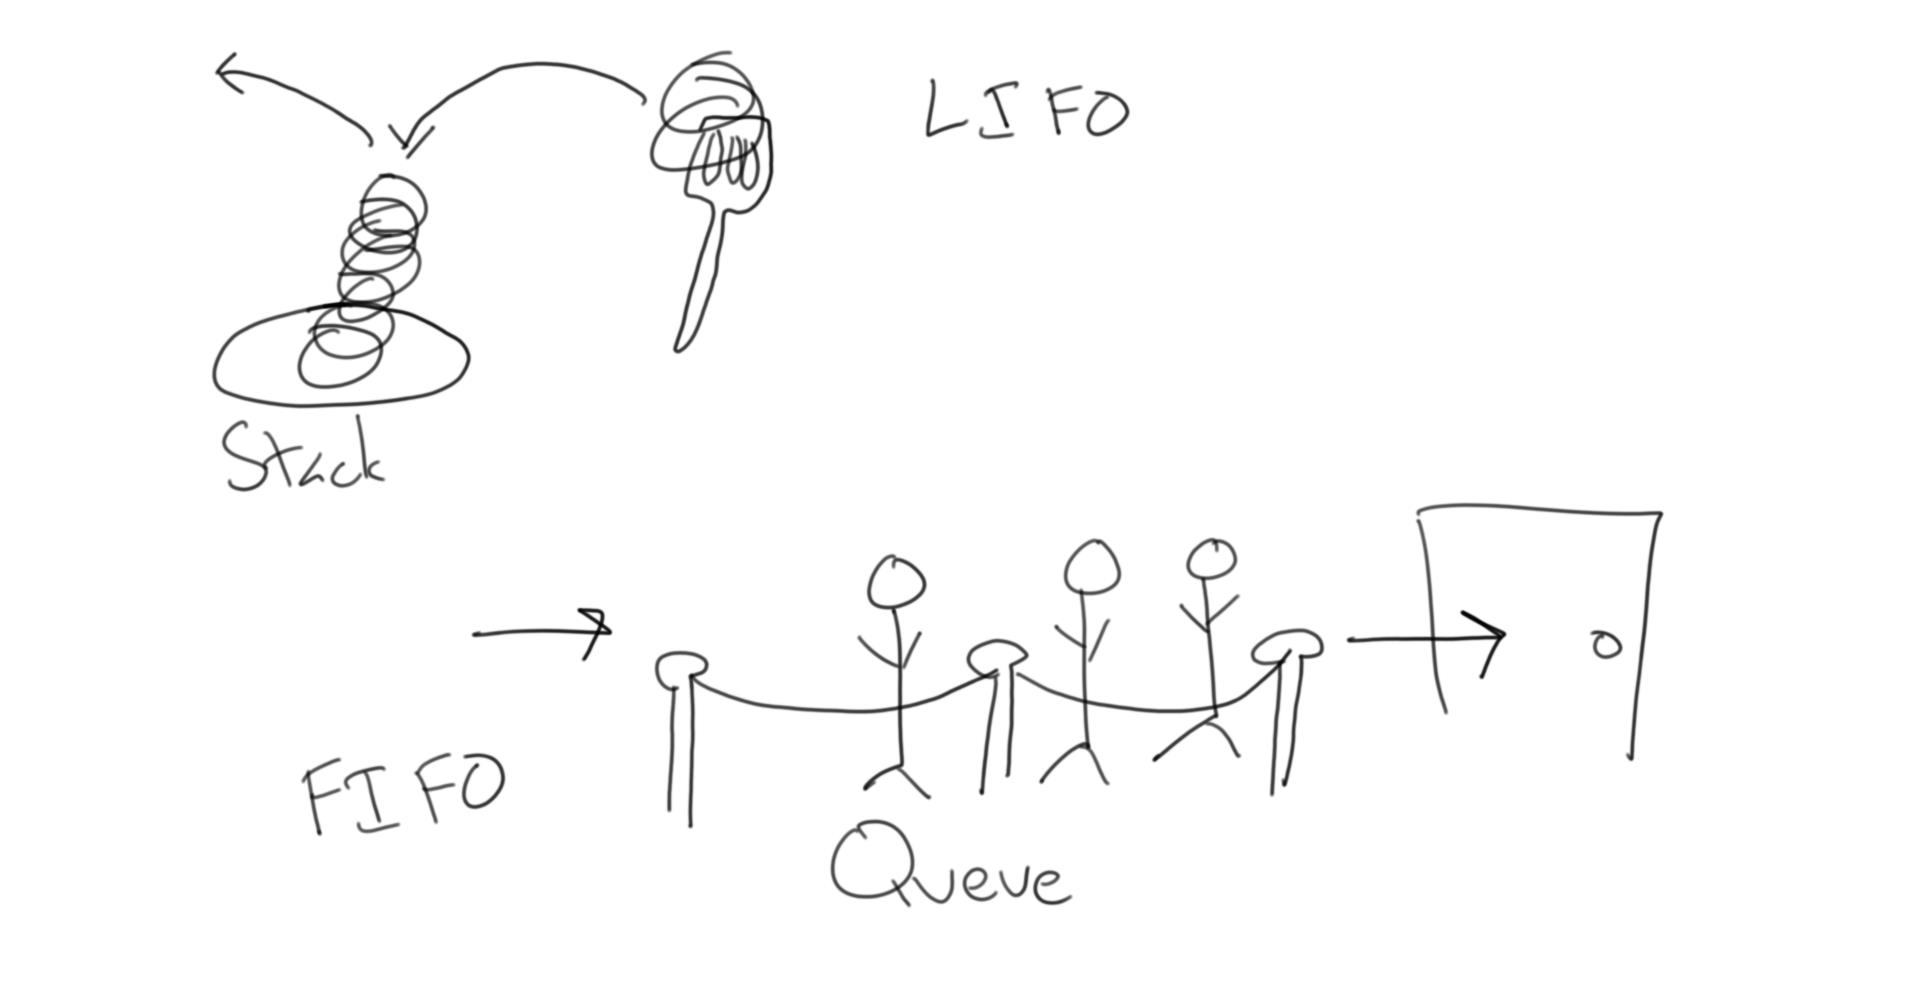 LIFO
Stack
FIFO
Queue